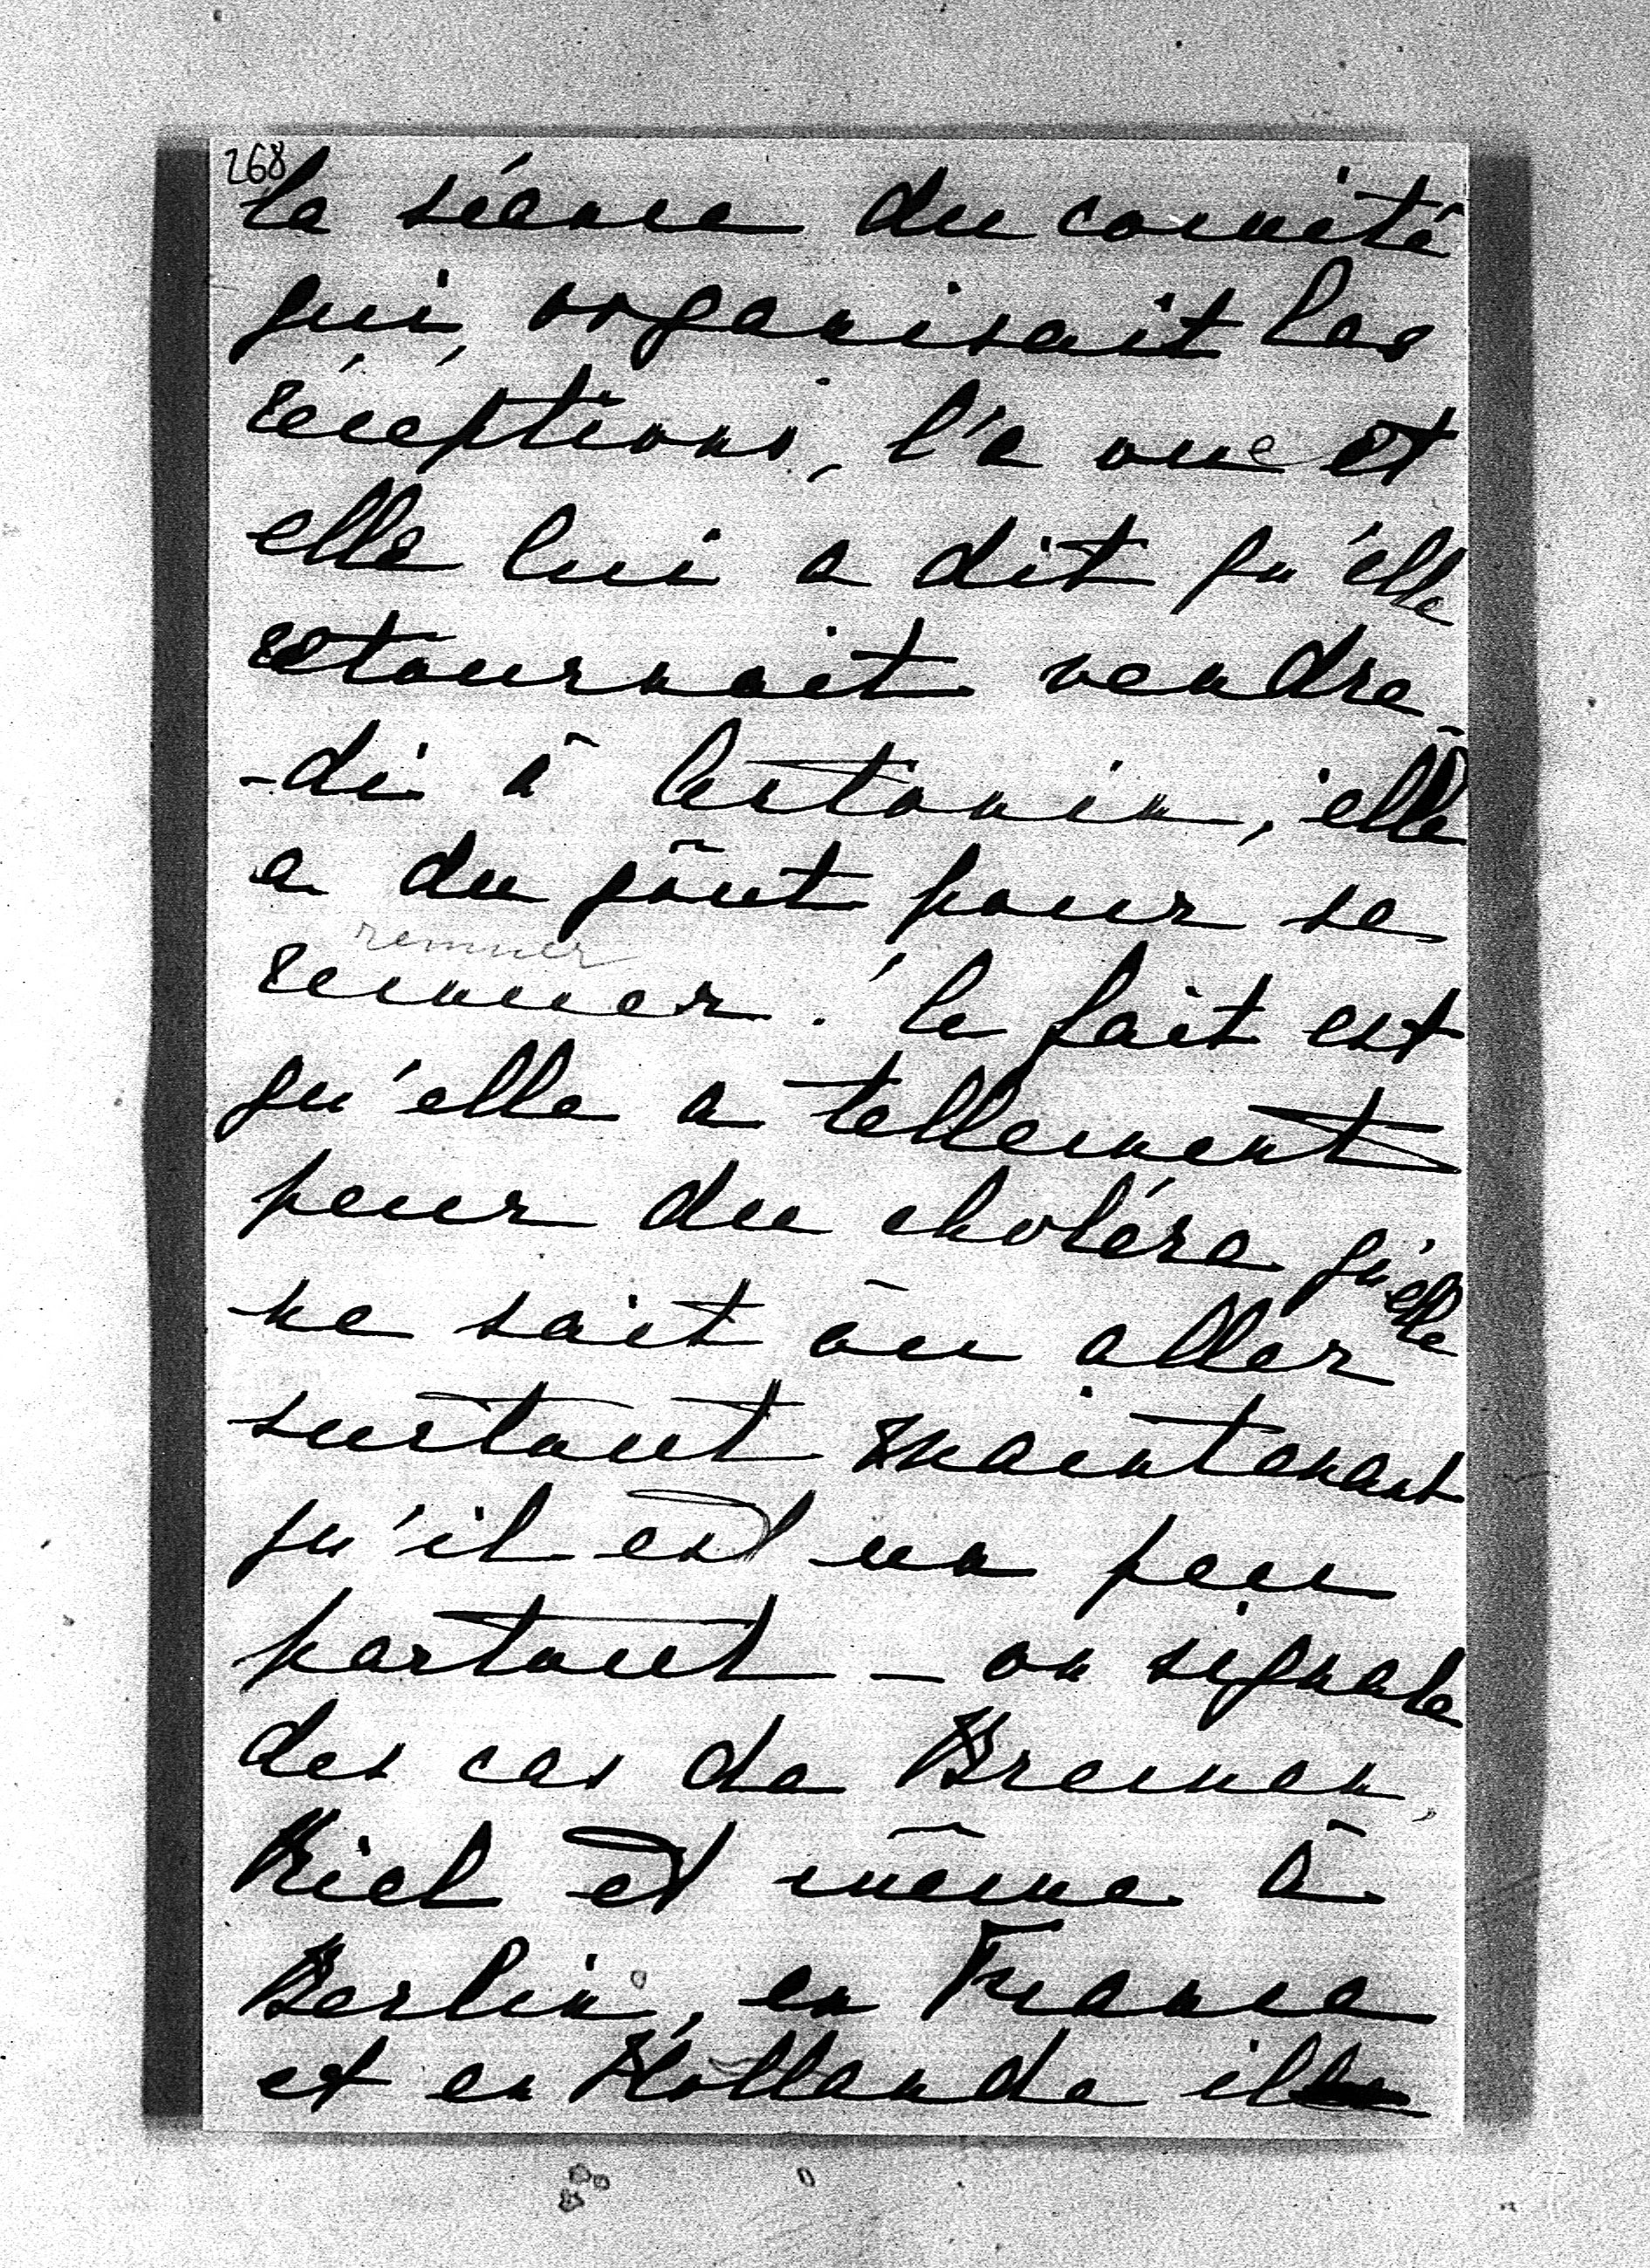 268
la séance du comité
qui organisait les
réceptions, l'a vue et
elle lui a dit qu'elle
retournait vendre-
-di à bertonin, elle
a du goût pour se
remuer
remuer. le fait est
qu'elle a tellement
peur du choléra qu'elle
ne sait où aller
surtout maintenant
qu'il est un peu
partout - on signale
des cas de Bremen,
Kiel et même à
Berlin, en France
et en Hollande il